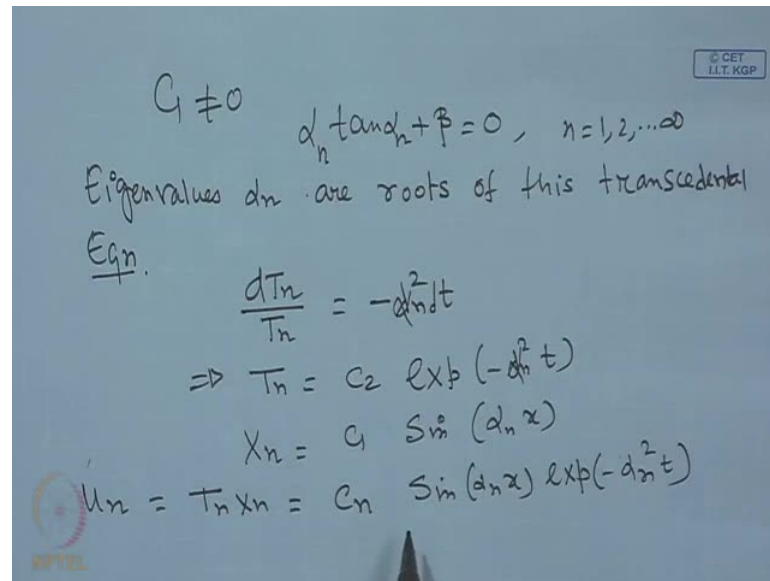 © CET
I.I.T. KGP
C₁ ≠ 0
αₙ tan αₙ + β = 0, n = 1, 2, ... ∞
Eigenvalues αₙ are roots of this transcedental
Eqn.
dTₙ/Tₙ = -αₙ² dt
⇒ Tₙ = C₂ exp(-αₙ² t)
Xₙ = C₁ Sin (αₙ x)
uₙ = Tₙ Xₙ = Cₙ Sin (αₙ x) exp(-αₙ² t)
NPTEL